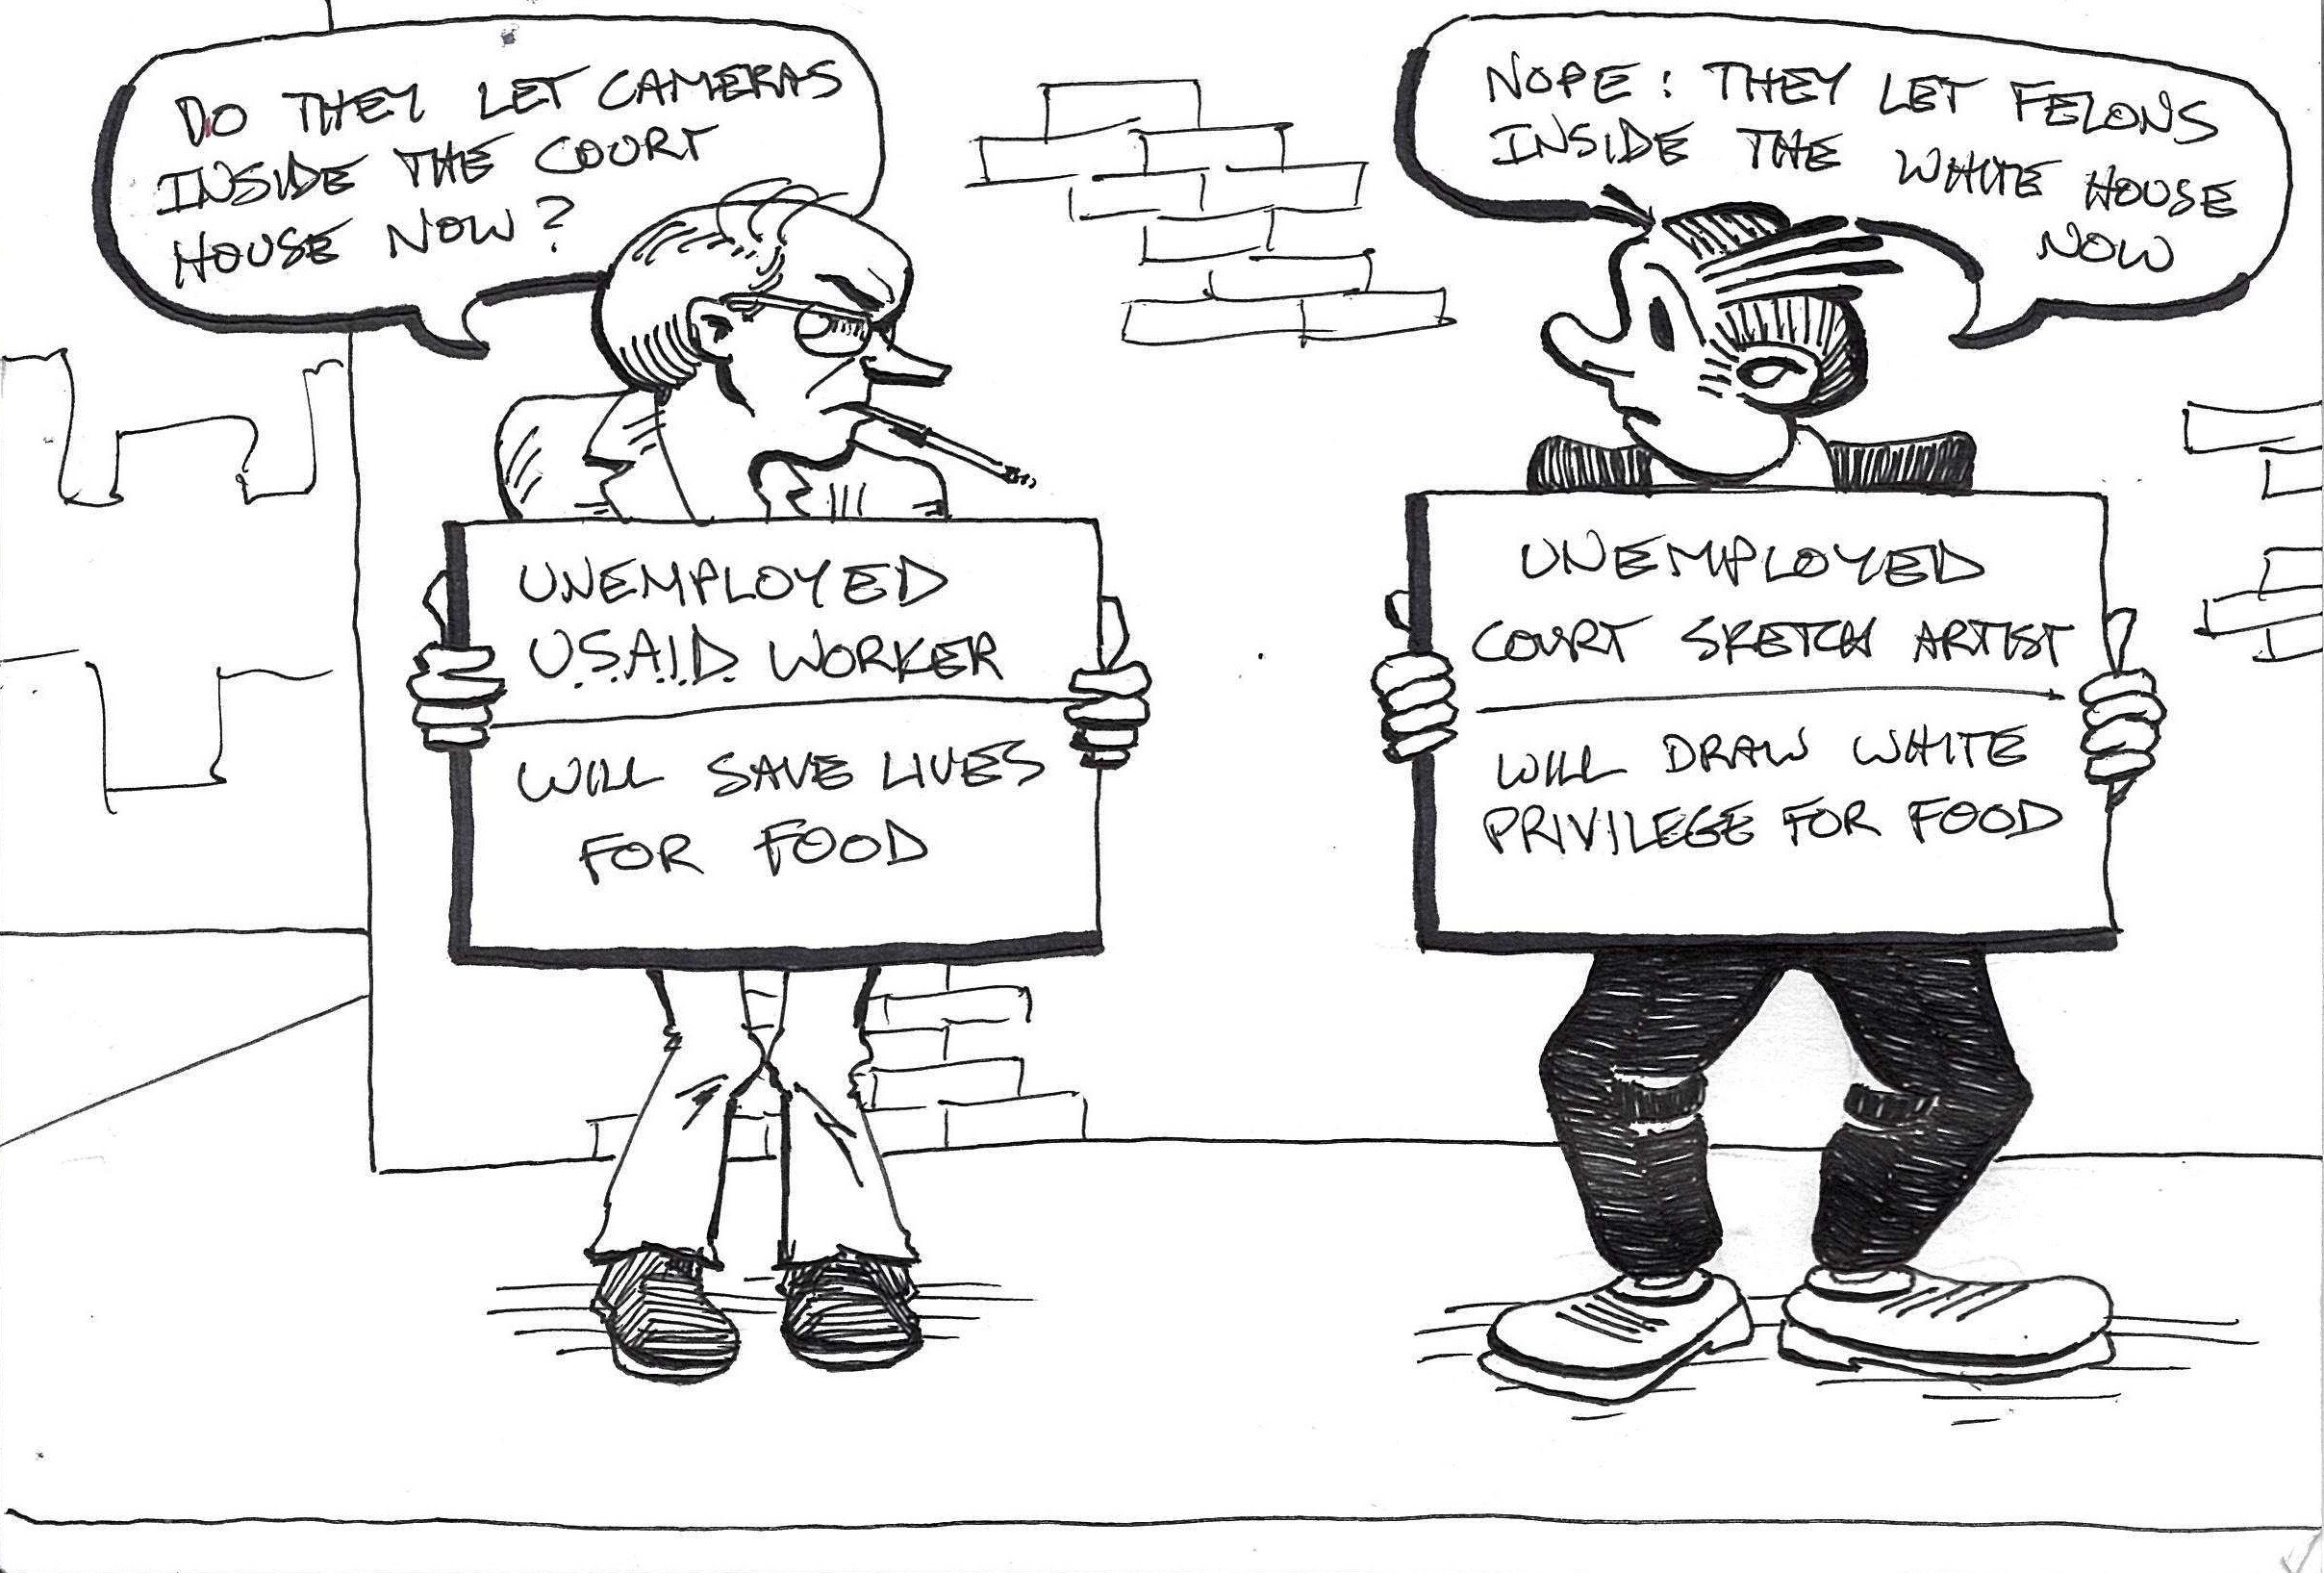 DO THEY LET CAMERAS
INSIDE THE COURT
HOUSE NOW?
NOPE: THEY LET FELONS
INSIDE THE WHITE HOUSE
NOW
UNEMPLOYED
U.S.A.I.D. WORKER
WILL SAVE LIVES
FOR FOOD
UNEMPLOYED
COURT SKETCH ARTIST
WILL DRAW WHITE
PRIVILEGE FOR FOOD